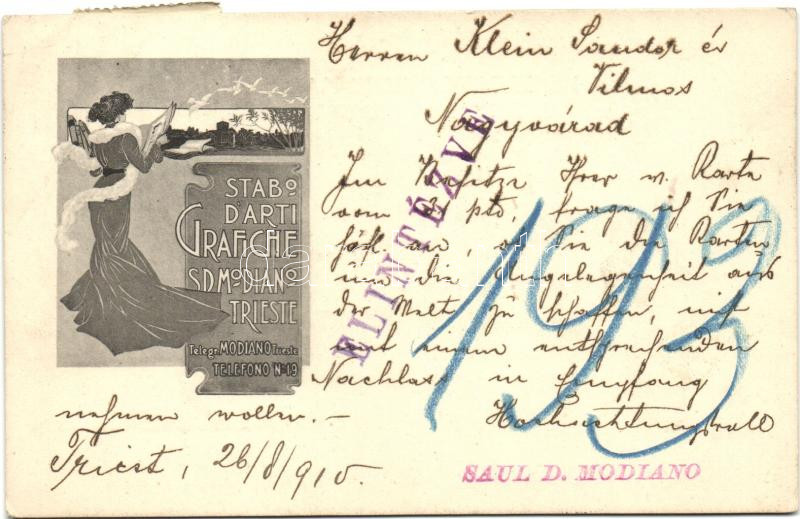 Herren Klein Sandor és
Vilmos
Nagyvárad
Im Besitze Ihrer w. Karte
vom pto, frage ich Sie
höfl. an, ob Sie die Karten
um die Angelegenheit aus
der Welt zu schaffen, nicht
mit einem entsprechenden
Nachlass in Empfang
nehmen wollen. -
Hochachtungsvoll
Triest, 26/8/910.
SAUL D. MODIANO
ELINTÉZVE
193
STABO
D'ARTI
GRAFICHE
S.D. MODIANO
TRIESTE
Telegr. MODIANO Trieste
TELEFONO No 19